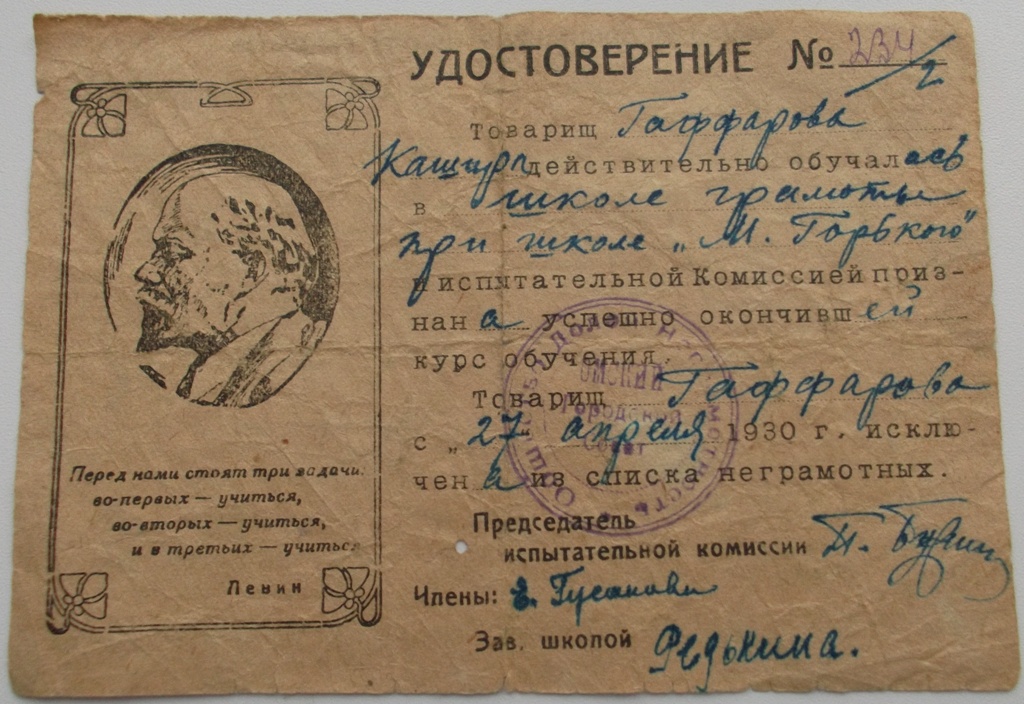 УДОСТОВЕРЕНИЕ № 234/2
Товарищ Гаффарова
действительно обучалась
в школе грамоты
при школе „М. Горького"
и испытательной Комиссией приз-
нана успешно окончившей
курс обучения.
Товарищ Гаффарова
с „27" апреля 1930 г. исклю-
чена из списка неграмотных.
Председатель
испытательной комиссии
Члены: Е.
Зав. школой Редькина.
Перед нами стоят три задачи:
во-первых — учиться,
во-вторых — учиться,
и в третьих — учиться
Ленин
Омский
Городской
Совет